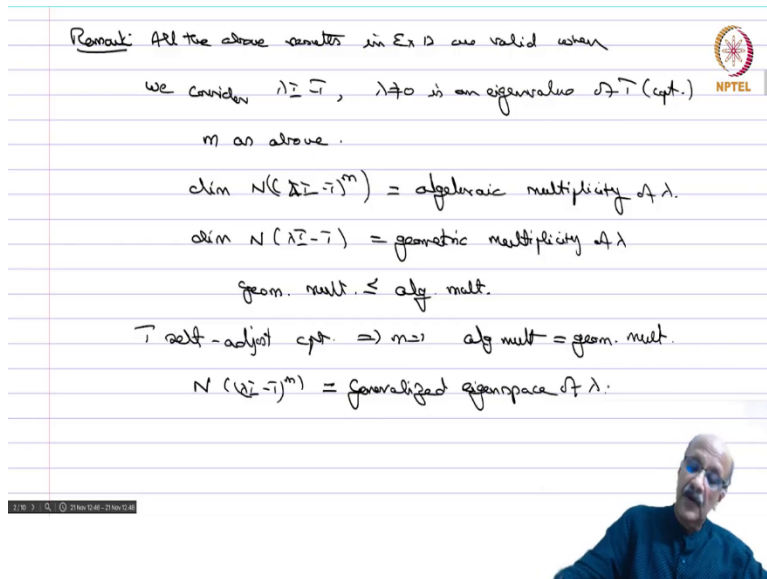 Remark: All the above results in Ex 12 are valid when
NPTEL
we consider λI-T, λ≠0 is an eigenvalue of T (cpt.)
m as above.
dim N((λI-T)^m) = algebraic multiplicity of λ.
dim N(λI-T) = geometric multiplicity of λ
geom. mult. ≤ alg. mult.
T self-adjoint cpt. => m=1 alg mult = geom. mult.
N((λI-T)^m) = Generalized eigenspace of λ.
2/10
21 Nov 12:46 - 21 Nov 12:46